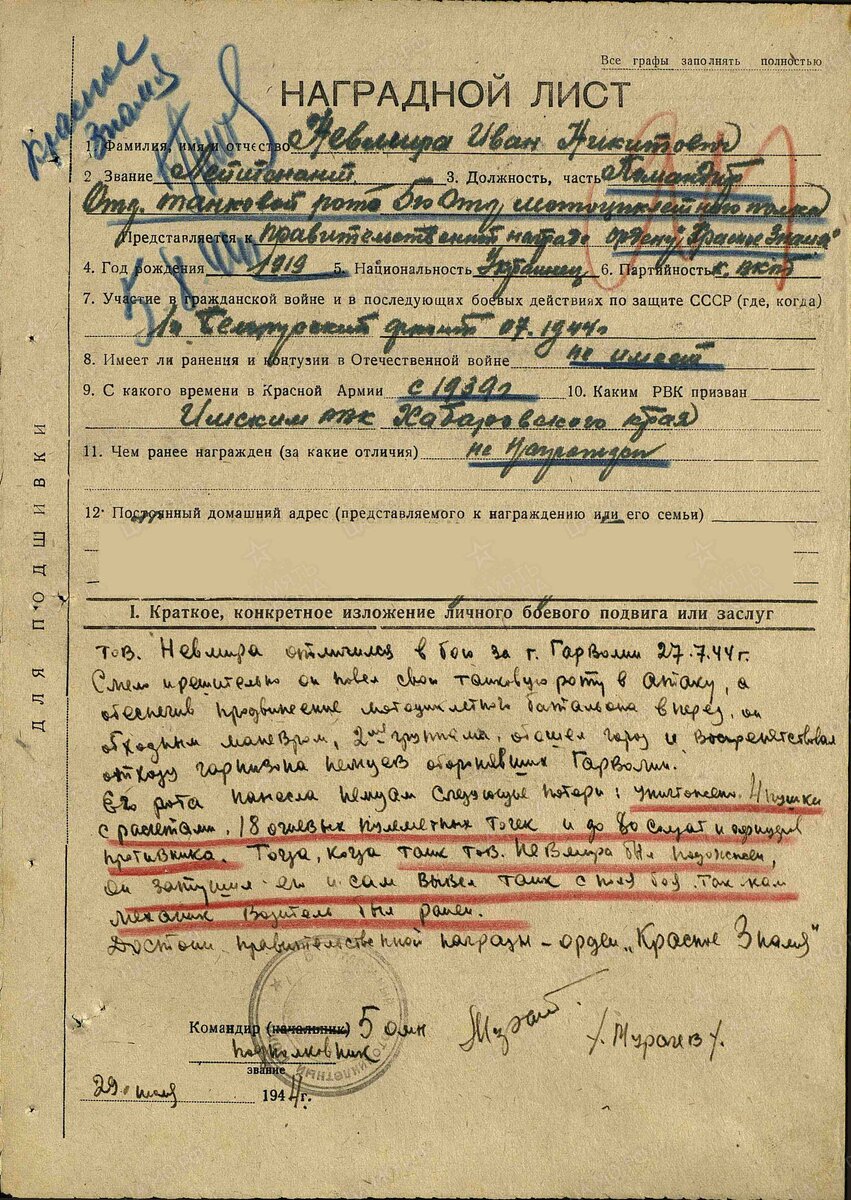 Все графы заполнять полностью
Красное
Знамя
НАГРАДНОЙ ЛИСТ
1. Фамилия, имя и отчество Невмира Иван Никитович
2 Звание Лейтенант 3. Должность, часть Командир
Отд. танковой роты 5го Отд. мотоциклетного полка
Представляется к правительственной награде ордену „Красное Знамя"
4. Год рождения 1919 5. Национальность Украинец 6. Партийность к. ВКПб
7. Участие в гражданской войне и в последующих боевых действиях по защите СССР (где, когда)
1й Белорусский фронт 07.1944г
8. Имеет ли ранения и контузии в Отечественной войне не имеет
9. С какого времени в Красной Армии с 1939г 10. Каким РВК призван
РВК Хабаровского края
11. Чем ранее награжден (за какие отличия) не награжден
12. Постоянный домашний адрес (представляемого к награждению или его семьи)
ДЛЯ ПОДШИВКИ
I. Краткое, конкретное изложение личного боевого подвига или заслуг
тов. Невмира отличился в бою за г. Гарволин 27.7.44г.
Смело и решительно он повел свою танковую роту в атаку, а
обеспечив продвижение мотоциклетного батальона вперед, он
обходным маневром, 2мя группами, обошел город и воспрепятствовал
отходу гарнизона немцев оборонявших Гарволин.
Его рота нанесла немцам следующие потери: уничтожено 4 пушки
с расчетами, 18 огневых пулеметных точек и до 80 солдат и офицеров
противника. Тогда, когда танк тов. Невмира был подожжен,
он затушил его и сам вывел танк с поля боя. Так как
механик водитель был ранен.
Достоин правительственной награды – орден „Красное Знамя"
Командир (начальник) 5 омп
подполковник
звание
/Мурачев/.
29 июля 1944г.